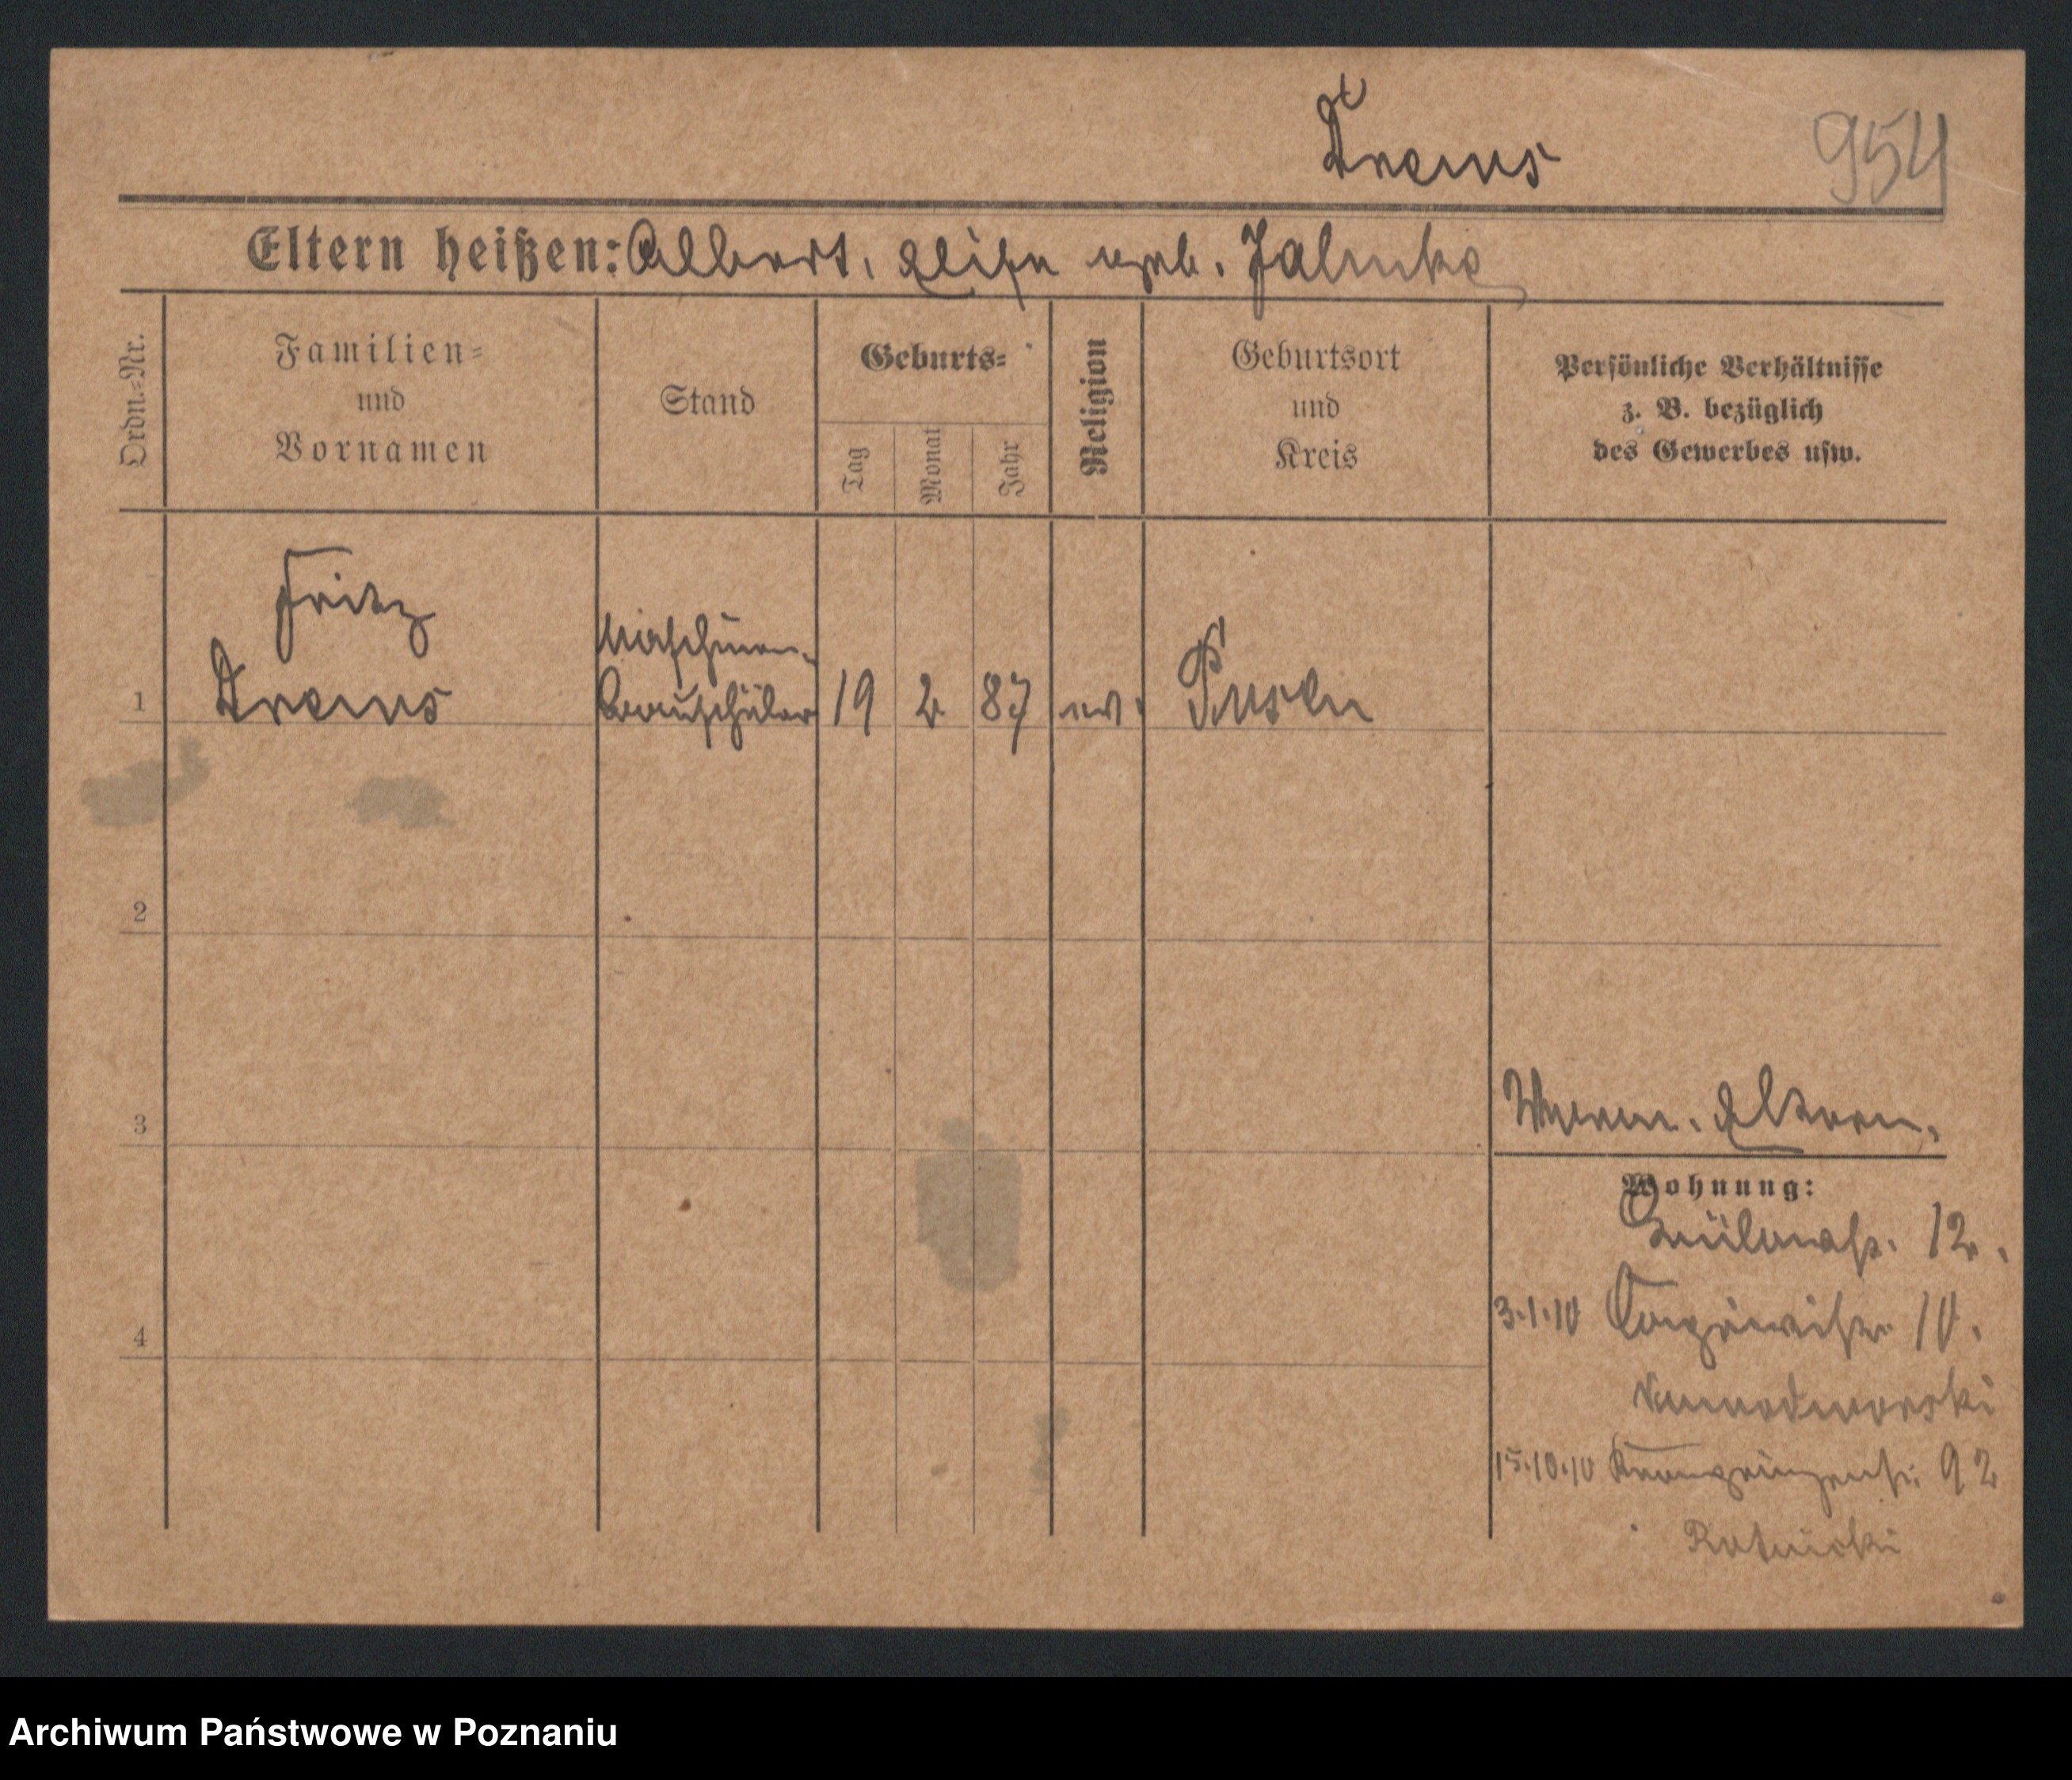 Drews
954
Eltern heißen: Albert, Elise geb. Jahnke
Ordn.-Nr.
Familien-
und
Vornamen
Stand
Geburts-
Tag
Monat
Jahr
Religion
Geburtsort
und
Kreis
Persönliche Verhältnisse
z. B. bezüglich
des Gewerbes usw.
Fritz
Drews
Maschinen-
bauschüler
19
2
87
ev.
Posen
1
2
3
Eltern.
Wohnung:
12.
3.1.10
10.
4
15.10.10 Kronprinzenstr. 92
Archiwum Państwowe w Poznaniu